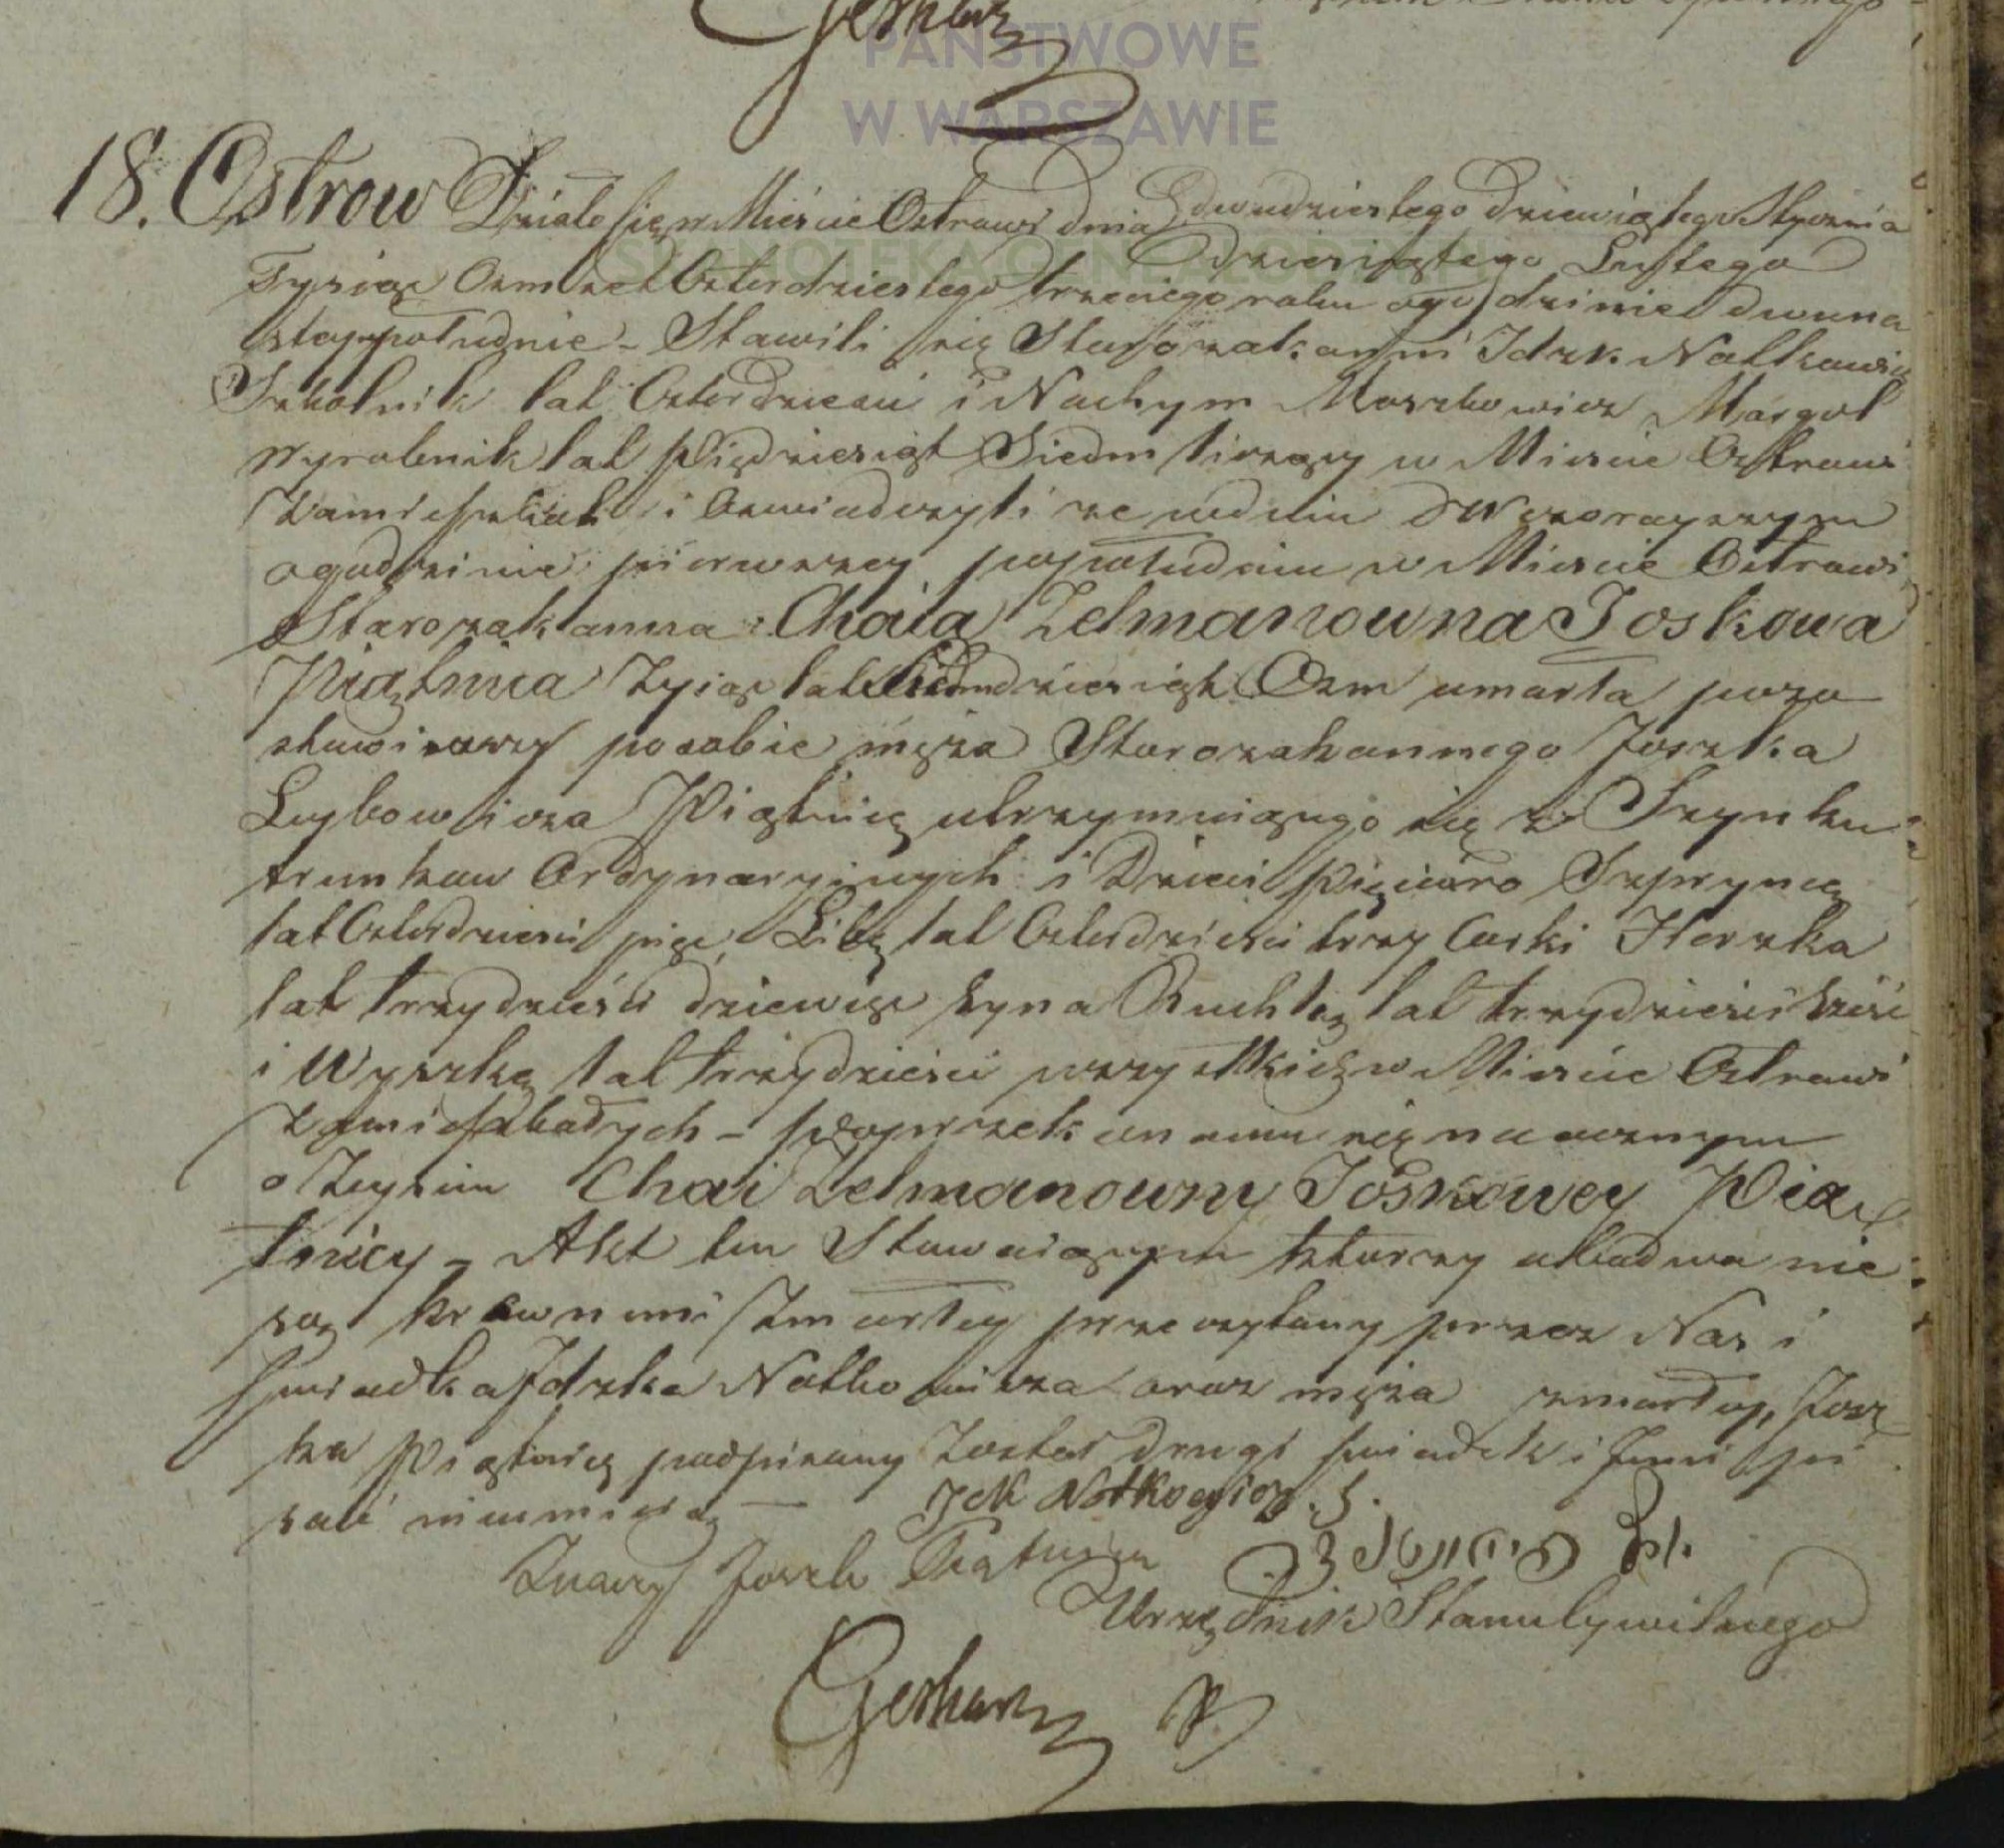 Gerhard
PAŃSTWOWE
W WARSZAWIE
18. Ostrow Działo się w Mieście Ostrowi dnia dwudziestego dziewiątego Stycznia
dziesiątego Lutego
Tysiąc Osmset Czterdziestego trzeciego roku o godzinie dwuna
stey popołudnie – Stawili się Starozakonni Idzk Notkowicz
Szkolnik lat Czterdzieści i Nachym Moszkowicz Margol
Wyrobnik lat Pięćdziesiąt Siedm liczący w Mieście Ostrowi
Zamieszkali i Oswiadczyli że w dniu Wczorayszym
o godzinie pierwszey popołudniu w Mieście Ostrowi
Starozakonna Chaia Zelmanowna Joskowa
Piątnica Żyiąc lat Siedmdziesiąt Osm umarła pozo
stawiwszy po sobie męża Starozakonnego Joszka
Leybowicza Piątnicę utrzymuiącego się z Szynku
trunkow Ordynaryinych i Dzieci Pięcioro Szpryncę
lat Czterdzieści pięć, Libę lat Czterdzieści trzy Corki Herszka
lat trzydzieści dziewięć Syna Ruchlę lat trzydzieści sześć
i Wyszkę lat trzydzieści wszystkich w Mieście Ostrowi
Zamieszkałych – Po przekonaniu się naocznym
o Zeyściu Chai Zelmanowny Joskowey Pią
tnicy – Akt ten Stawaiącym ktorzy obadwa nie
są krewnemi Zmarłey przeczytany przez Nas i
Swiadka Idzka Notkowicza oraz męża zmarłey, Josz
ka Piątnicę podpisany Został drugi swiadek i Inni pi
sać nieumieią –
Ick Notkowicz. S.
Joszk Piątnica
Urzędnik Stanu Cywilnego
Gerhard